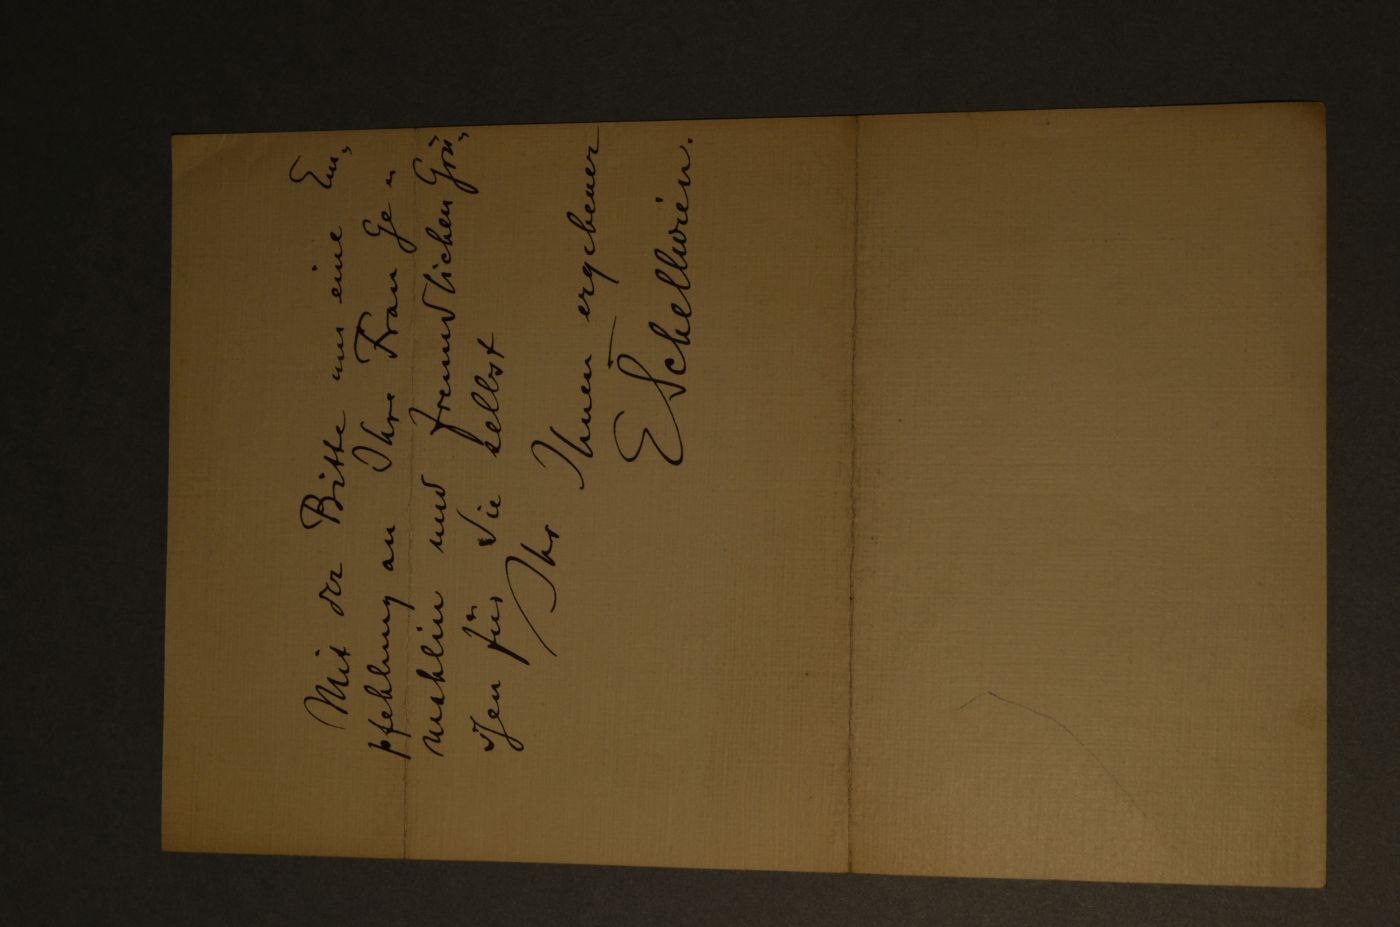 Mit der Bitte um eine Em„
pfehlung an Ihre Frau Ge„
mahlin und freundlichen Grü„
ßen für Sie selbst
Ihr Ihnen ergebener
ESchellwien.